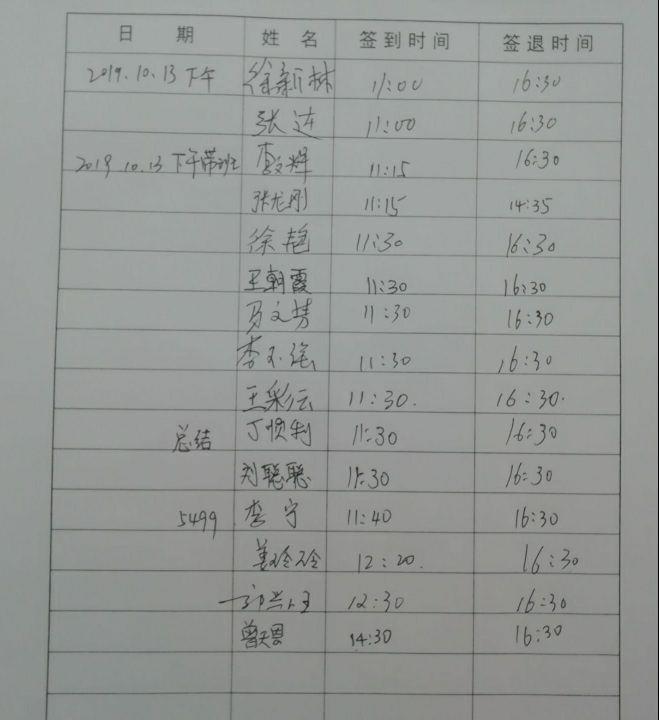 日 期 姓 名 签到时间 签退时间
2019.10.13 下午 徐新林 11:00 16:30
张连 11:00 16:30
2019 10.13 下午带班 辉 11:15 16:30
张龙刚 11:15 14:35
徐艳 11:30 16:30
王朝霞 11:30 16:30
马文芳 11:30 16:30
李不 11:30 16:30
王彩云 11:30. 16:30.
总结 丁顺利 11:30 16:30
刘聪聪 11:30 16:30
5499 李宁 11:40 16:30
姜玲玲 12:20. 16:30
12:30 16:30
曾天恩 14:30 16:30